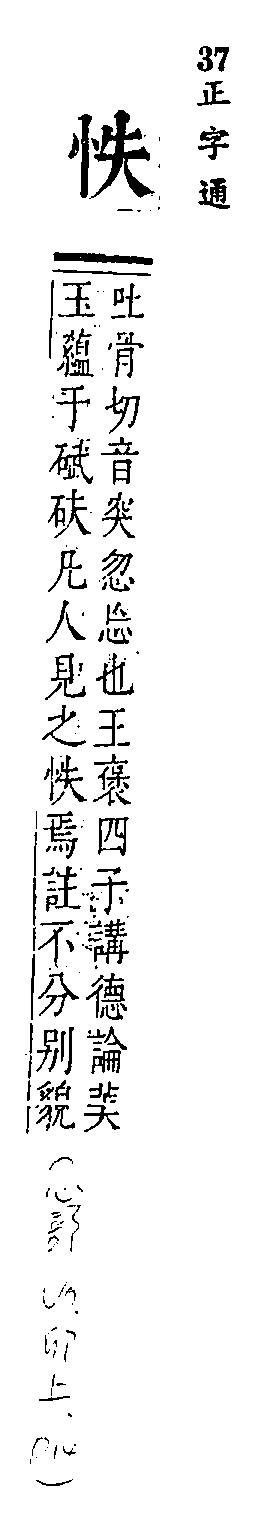 37正字通
怢
吐骨切音突忽忘也王褒四子講德論美
玉蘊于碔砆凡人見之怢焉註不分别貌
(心部 卯上、P14)